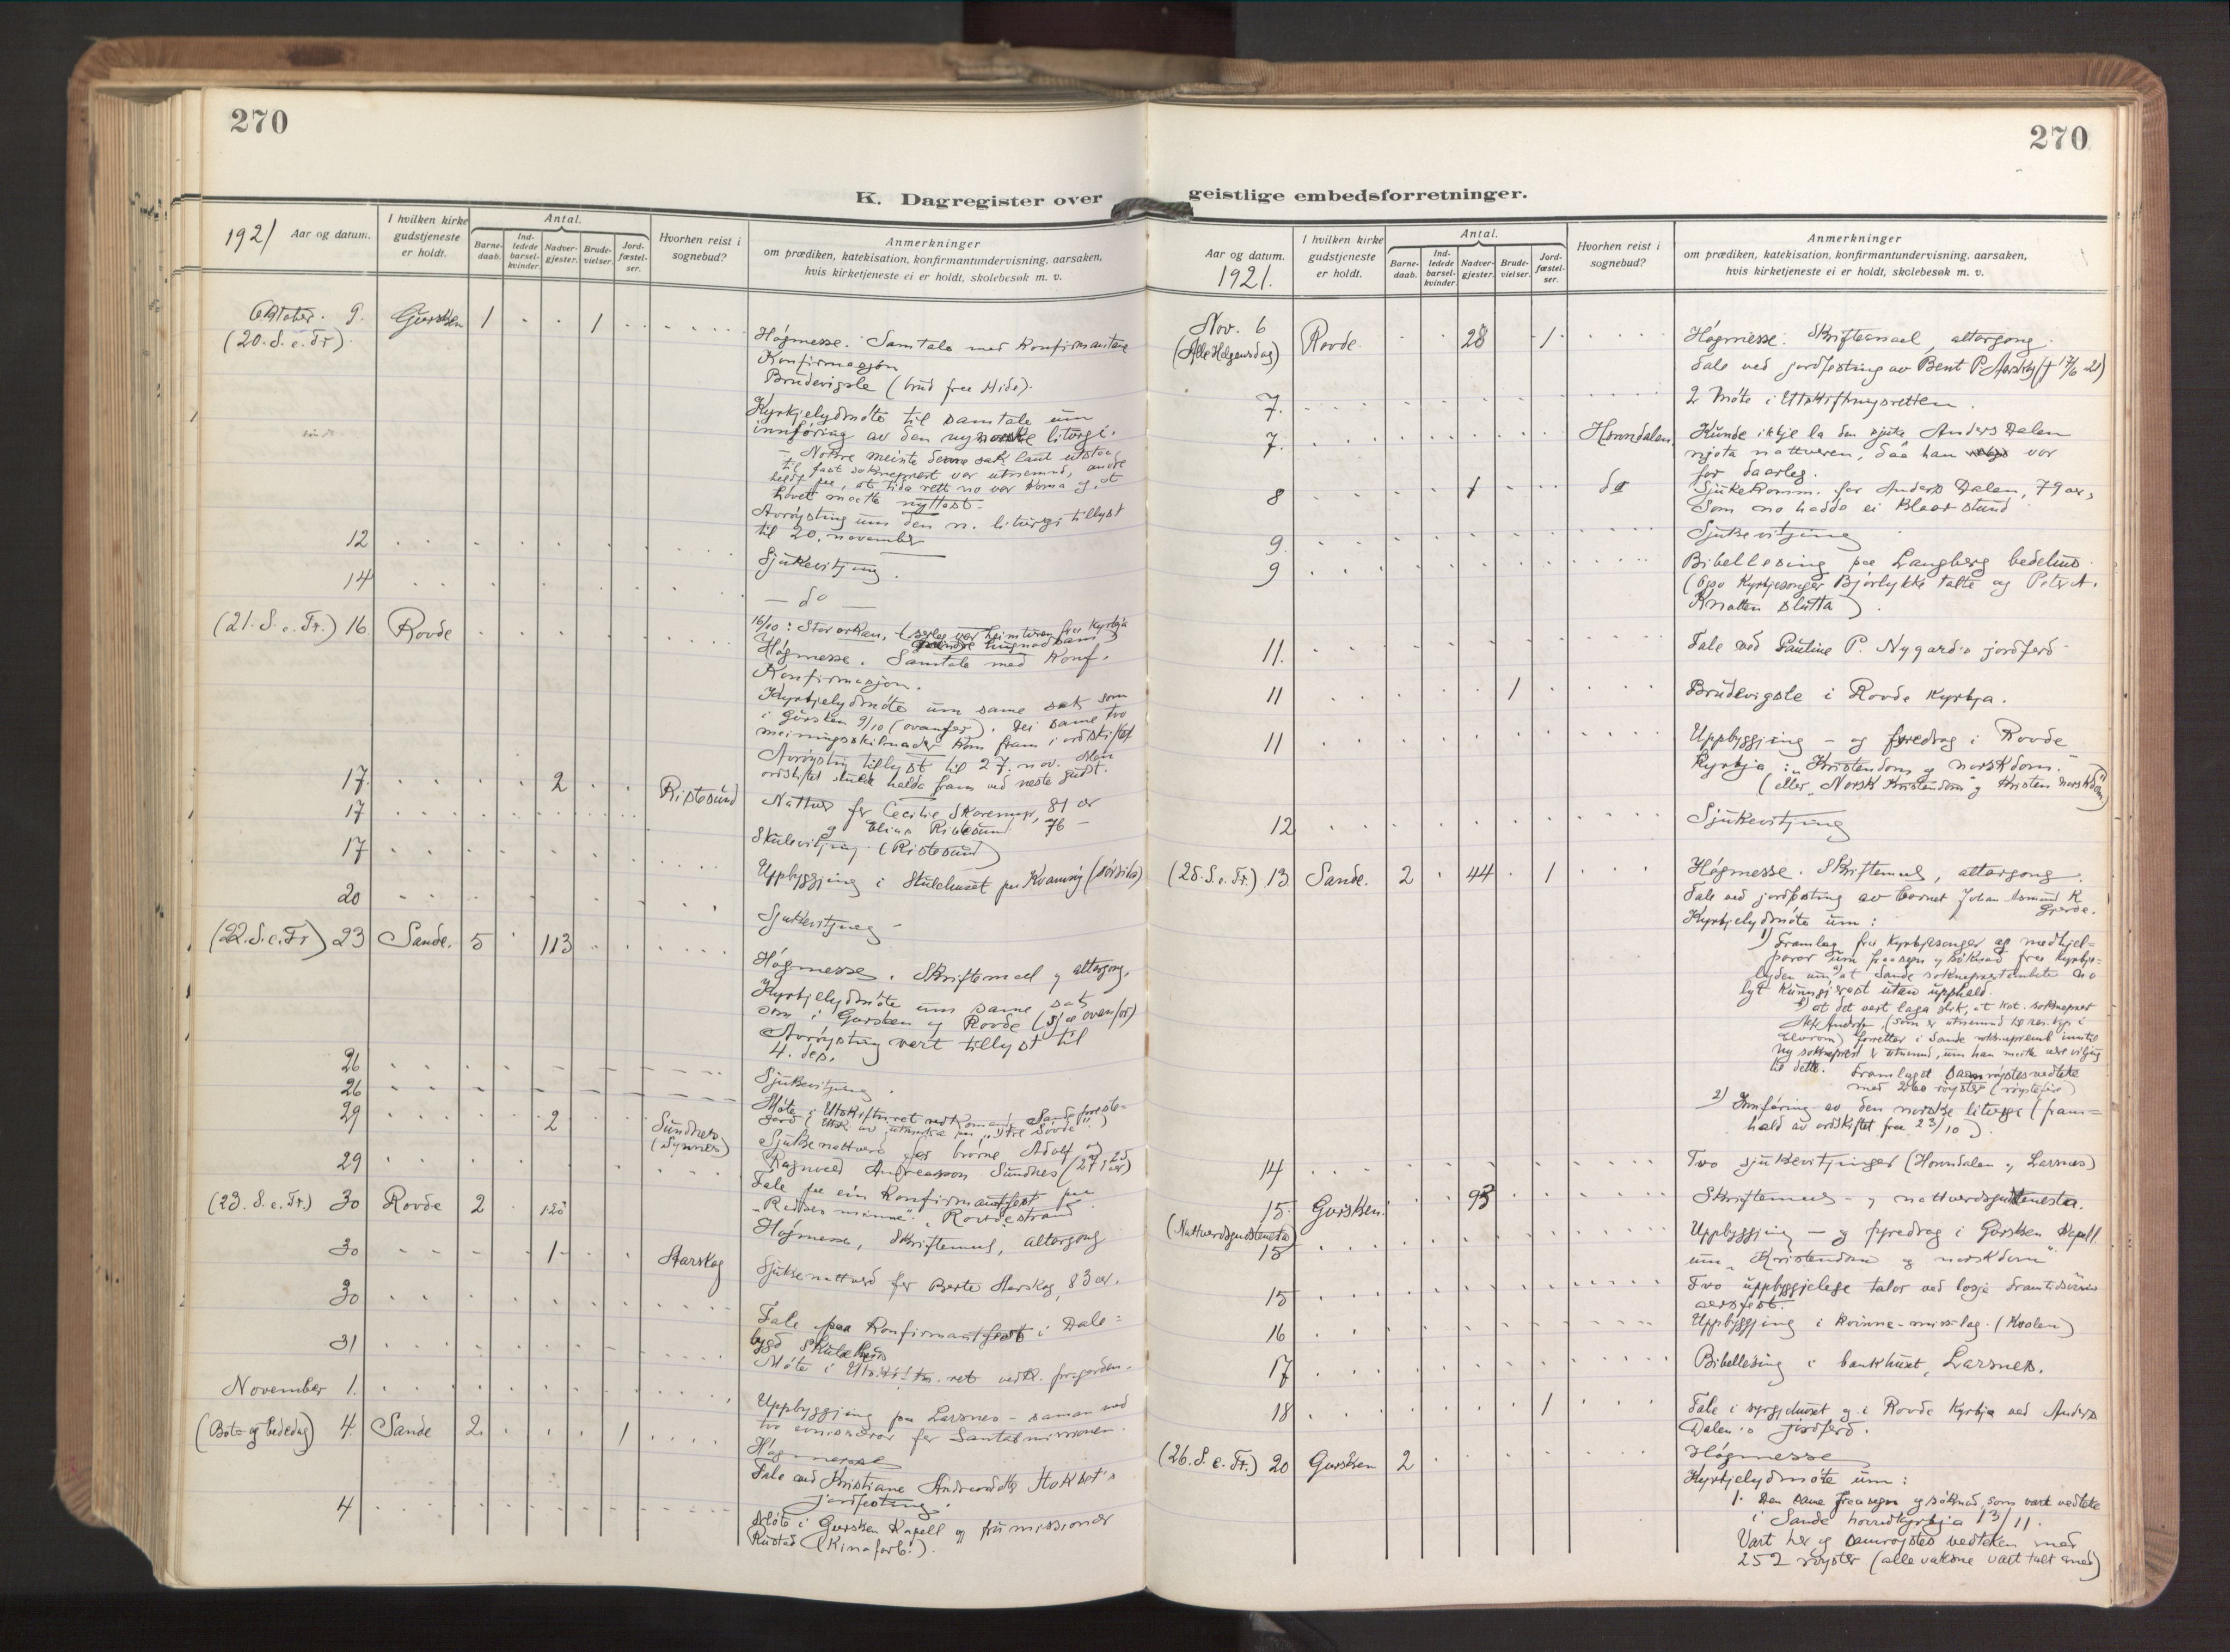 270
K. Dagregister over
1921 Aar og datum.
I hvilken kirke gudstjeneste er holdt.
Antal.
Barne-daab.
Ind-ledede barsel-kvinder.
Nadver-gjester.
Brude-vielser.
Jord-fæstel-ser.
Hvorhen reist i sognebud?
Anmerkninger
om prædiken, katekisation, konfirmantundervisning, aarsaken,
hvis kirketjeneste ei er holdt, skolebesøk m. v.
Oktober 9. Gursken 1 . . 1
(20. S. e. Tr.)
Høgmesse. Samtale med konfirmantane
Konfirmasjon
Brudevigsle (brud frå Eide).
Kyrkjelydmøte til samtale um
innføring av den nynorske liturgi.
- Nokre meinte denne sak laut utstaa
til fast sokneprest var utnemnd, andre
heldt paa, at tida rett no var koma og at
høvet maatte nyttast.-
Avrøysting um den n. liturgi tillyst
til 20. november
12
Sjukevitjing.
14
— do —
(21. S. e. Tr.) 16 Rovde
16/10: Stor orkan,
Høgmesse. Samtale med konf.
Konfirmasjon.
Kyrkjelydmøte um same sak som
i Gursken 9/10 (ovanfor). Dei same tvo
meiningsskilnader kom fram i ordskiftet
Avrøysting tillyst til 27. nov. Men
ordskiftet skulde halda fram ved neste gudst.
17. 2 Ristesund
Nattverd for Cecilie Skoremyr, 81 aar
og Elina Ristesund 76 -
17
Skulevitjing (Ristesund)
17
Uppbyggjing i Skulehuset paa Kvamsøy (sørsida)
20
Sjukevitjing -
(22. S. e. Tr) 23 Sande. 5 . 113
Høgmesse. Skriftemaal og altargong,
Kyrkjelydmøte um same sak
som i Gursken og Rovde (sjaa ovanfor)
Avrøysting vert tillyst til
4. des.
26
Sjukevitjing.
26
Møte i Utskiftn.ret
29 2 Sundnes
(Synnes)
Sjukenattverd for brørne Adolf og
Ragnvald Andreasson Sundnes (27 og 25 aar)
29
Tale paa ein konfirmantfest paa
"Reidses minne", Rovdestrand
(23. S. e. Tr.) 30 Rovde 2 . 125
Høgmesse, Skriftemaal, altargong
30 1 Aarskog
Sjukenattverd for Berte Aarskog, 83 aar.
30
Tale paa konfirmantfest i Dale-
bygd skulehus
31
Møte i Utskiftn. ret vedk. prgarden.
November 1.
Uppbyggjing paa Larsnes - saman med
tvo emissærar for Santalmissionen.
(Bot- og bededag) 4. Sande 2. . . . 1
Høgmesse
Tale ved Kristiane Andreasdtr Stokset's
jordfesting.
4
Møte i Gursken Kapell og fru missionær
Rustad (Kinaforb.).
270
geistlige embedsforretninger.
Aar og datum.
1921.
I hvilken kirke gudstjeneste er holdt.
Antal.
Barne-daab.
Ind-ledede barsel-kvinder.
Nadver-gjester.
Brude-vielser.
Jord-fæstel-ser.
Hvorhen reist i sognebud?
Anmerkninger
om prædiken, katekisation, konfirmantundervisning, aarsaken,
hvis kirketjeneste ei er holdt, skolebesøk m. v.
Nov. 6 Rovde. . . 28 . 1.
(Alle Helgensdag)
Høgmesse. Skriftemaal, altargong.
Tale ved jordfesting av Bent P. Aarskog
7.
2 Møte i Utskiftningsretten.
7. Honndalen
Kunde ikkje la den sjuke Anders Dalen
njota nattverden, daa han var
for daarleg.
8 1 do
Sjukekomm. for Anders Dalen, 79 aar,
som no hadde ei klaar stund
9.
Sjukevitjing
9
Bibellesing paa Langberg bedehus
(Og Kyrkjesongar Bjørlykke talte og Peter A.
Knotten slutta).
11.
Tale ved Pauline P. Nygard's jordferd
11 1
Brudevigsle i Rovde Kyrkja.
11
Uppbyggjing - og fyredrag i Rovde
Kyrkja: "Kristendom og norskdom."
(eller "Norsk Kristendom" og Kristen norskdom)
12
Sjukevitjing
(25. S. e. Tr.) 13 Sande. 2 . 44 . 1
Høgmesse. Skriftemaal, altargong.
Tale ved jordfesting av barnet Johan Asmund K
Gjerde.
Kyrkjelydmøte um:
1) Framlag fraa kyrkjesongar og medhjel-
parar um fraasegn og søknad fraa kyrkje-
lyden um at Sande sokneprestembæte no
lyt kunngjerast utan upphald.
b) at det vert laga slik, at kst. sokneprest
(som er utnemnd til res. kap. i
Elverum) forrettar i Sande sokneprestemb. inntil
ny sokneprest er utnemnd, um han maatte vera viljug
til dette. Framlaget samrøystes vedteke
med 260 røyster (røysteføre)
2) Innføring av den norske liturgi (fram-
hald av ordskiftet fraa 23/10).
14
Tvo sjukevitjingar (Honndalen og Larsnes)
15. Gursken. . . 93
(Nattverdsgudstenesta)
Skriftemaal - og nattverdsgudstenesta.
15
Uppbyggjing - og fyredrag i Gursken Kapell
um "Kristendom og norskdom".
15
Tvo uppbyggjelege talar ved losje Framtidsvons
aarsfest.
16
Uppbyggjing i kvinne-miss-lag. (Hvolen)
17
Bibellesing i bankhuset, Larsnes.
18 1
Tale i syrgjehuset og i Rovde Kyrkja ved Anders
Dalen's jordferd.
(26. S. e. Tr.) 20 Gursken 2
Høgmesse
Kyrkjelydmøte um:
1. Den same fraasegn og søknad, som vart vedteke
i Sande hovudkyrkja 13/11.
Vart her og samrøystes vedteken med
252 røyster (alle vaksne vart talt med)